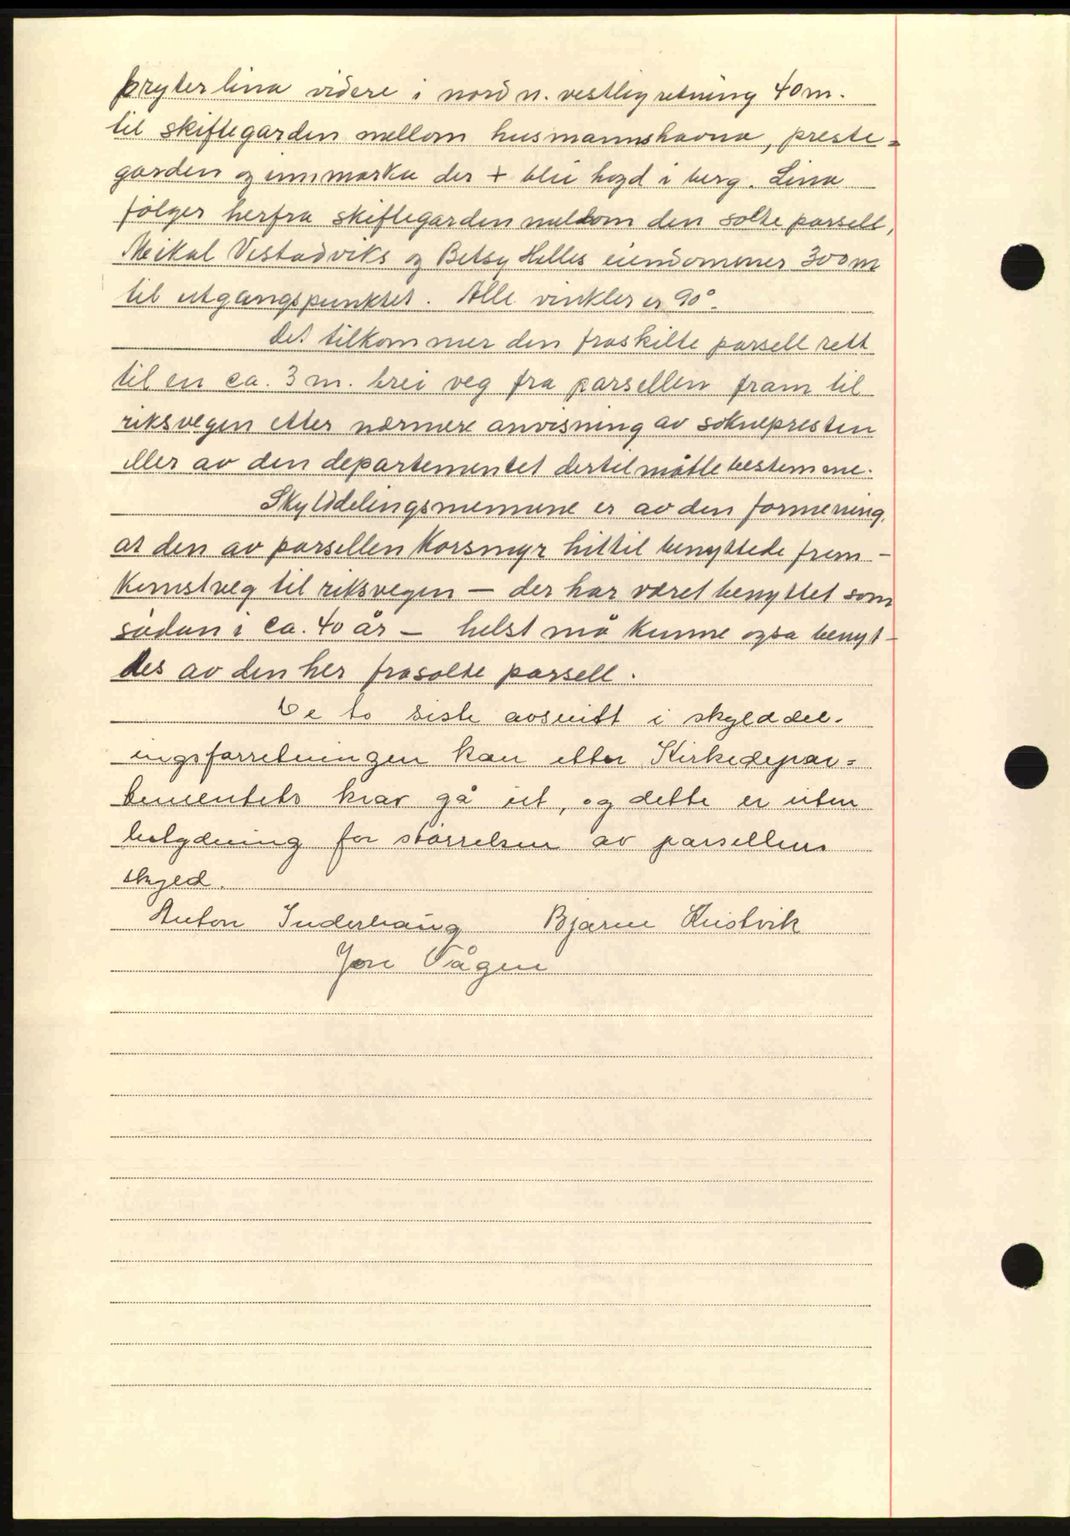 bryter lina videre i nord n. vestlig retning 40 m.
til skiftegarden mellom husmannshavna, preste=
garden og innmarka der + blei hogd i berg. Lina
følger herfra skiftegarden mellom den solte parsell,
Meikal Vestadviks og Betsy Helles eiendommer 300 m
til utgangspunktet. Alle vinkler er 90°.
Det tilkommer den fraskilte parsell rett
til en ca. 3 m. brei veg fra parsellen fram til
riksvegen etter nærmere anvisning av soknepresten
eller av den departementet dertil måtte bestemme.
Skylddelingsmennene er av den formening,
at den av parsellen Korsmyr hittil benyttede frem-
komstveg til riksvegen – der har været benyttet som
sådan i ca. 40 år – helst må kunne også benyt-
tes av den her frasolte parsell.
De to siste avsnitt i skylddel-
ingsforretningen kan etter Kirkedepar=
tementets krav gå ut, og dette er uten
betydning for størrelsen av parsellens
skyld.
Anton Inderhaug Bjarne Kristvik
Jon Vågen